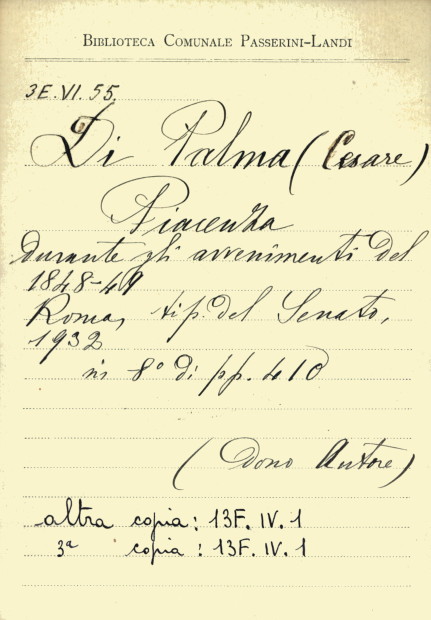 BIBLIOTECA COMUNALE PASSERINI-LANDI
3E.VI.55.
Di Palma (Cesare)
Piacenza
durante gli avvenimenti del
1848-49
Roma, tip. del Senato,
1932
in 8° di pp. 410
(Dono Autore)
altra copia: 13F. IV. 1
3ª copia: 13F. IV. 1